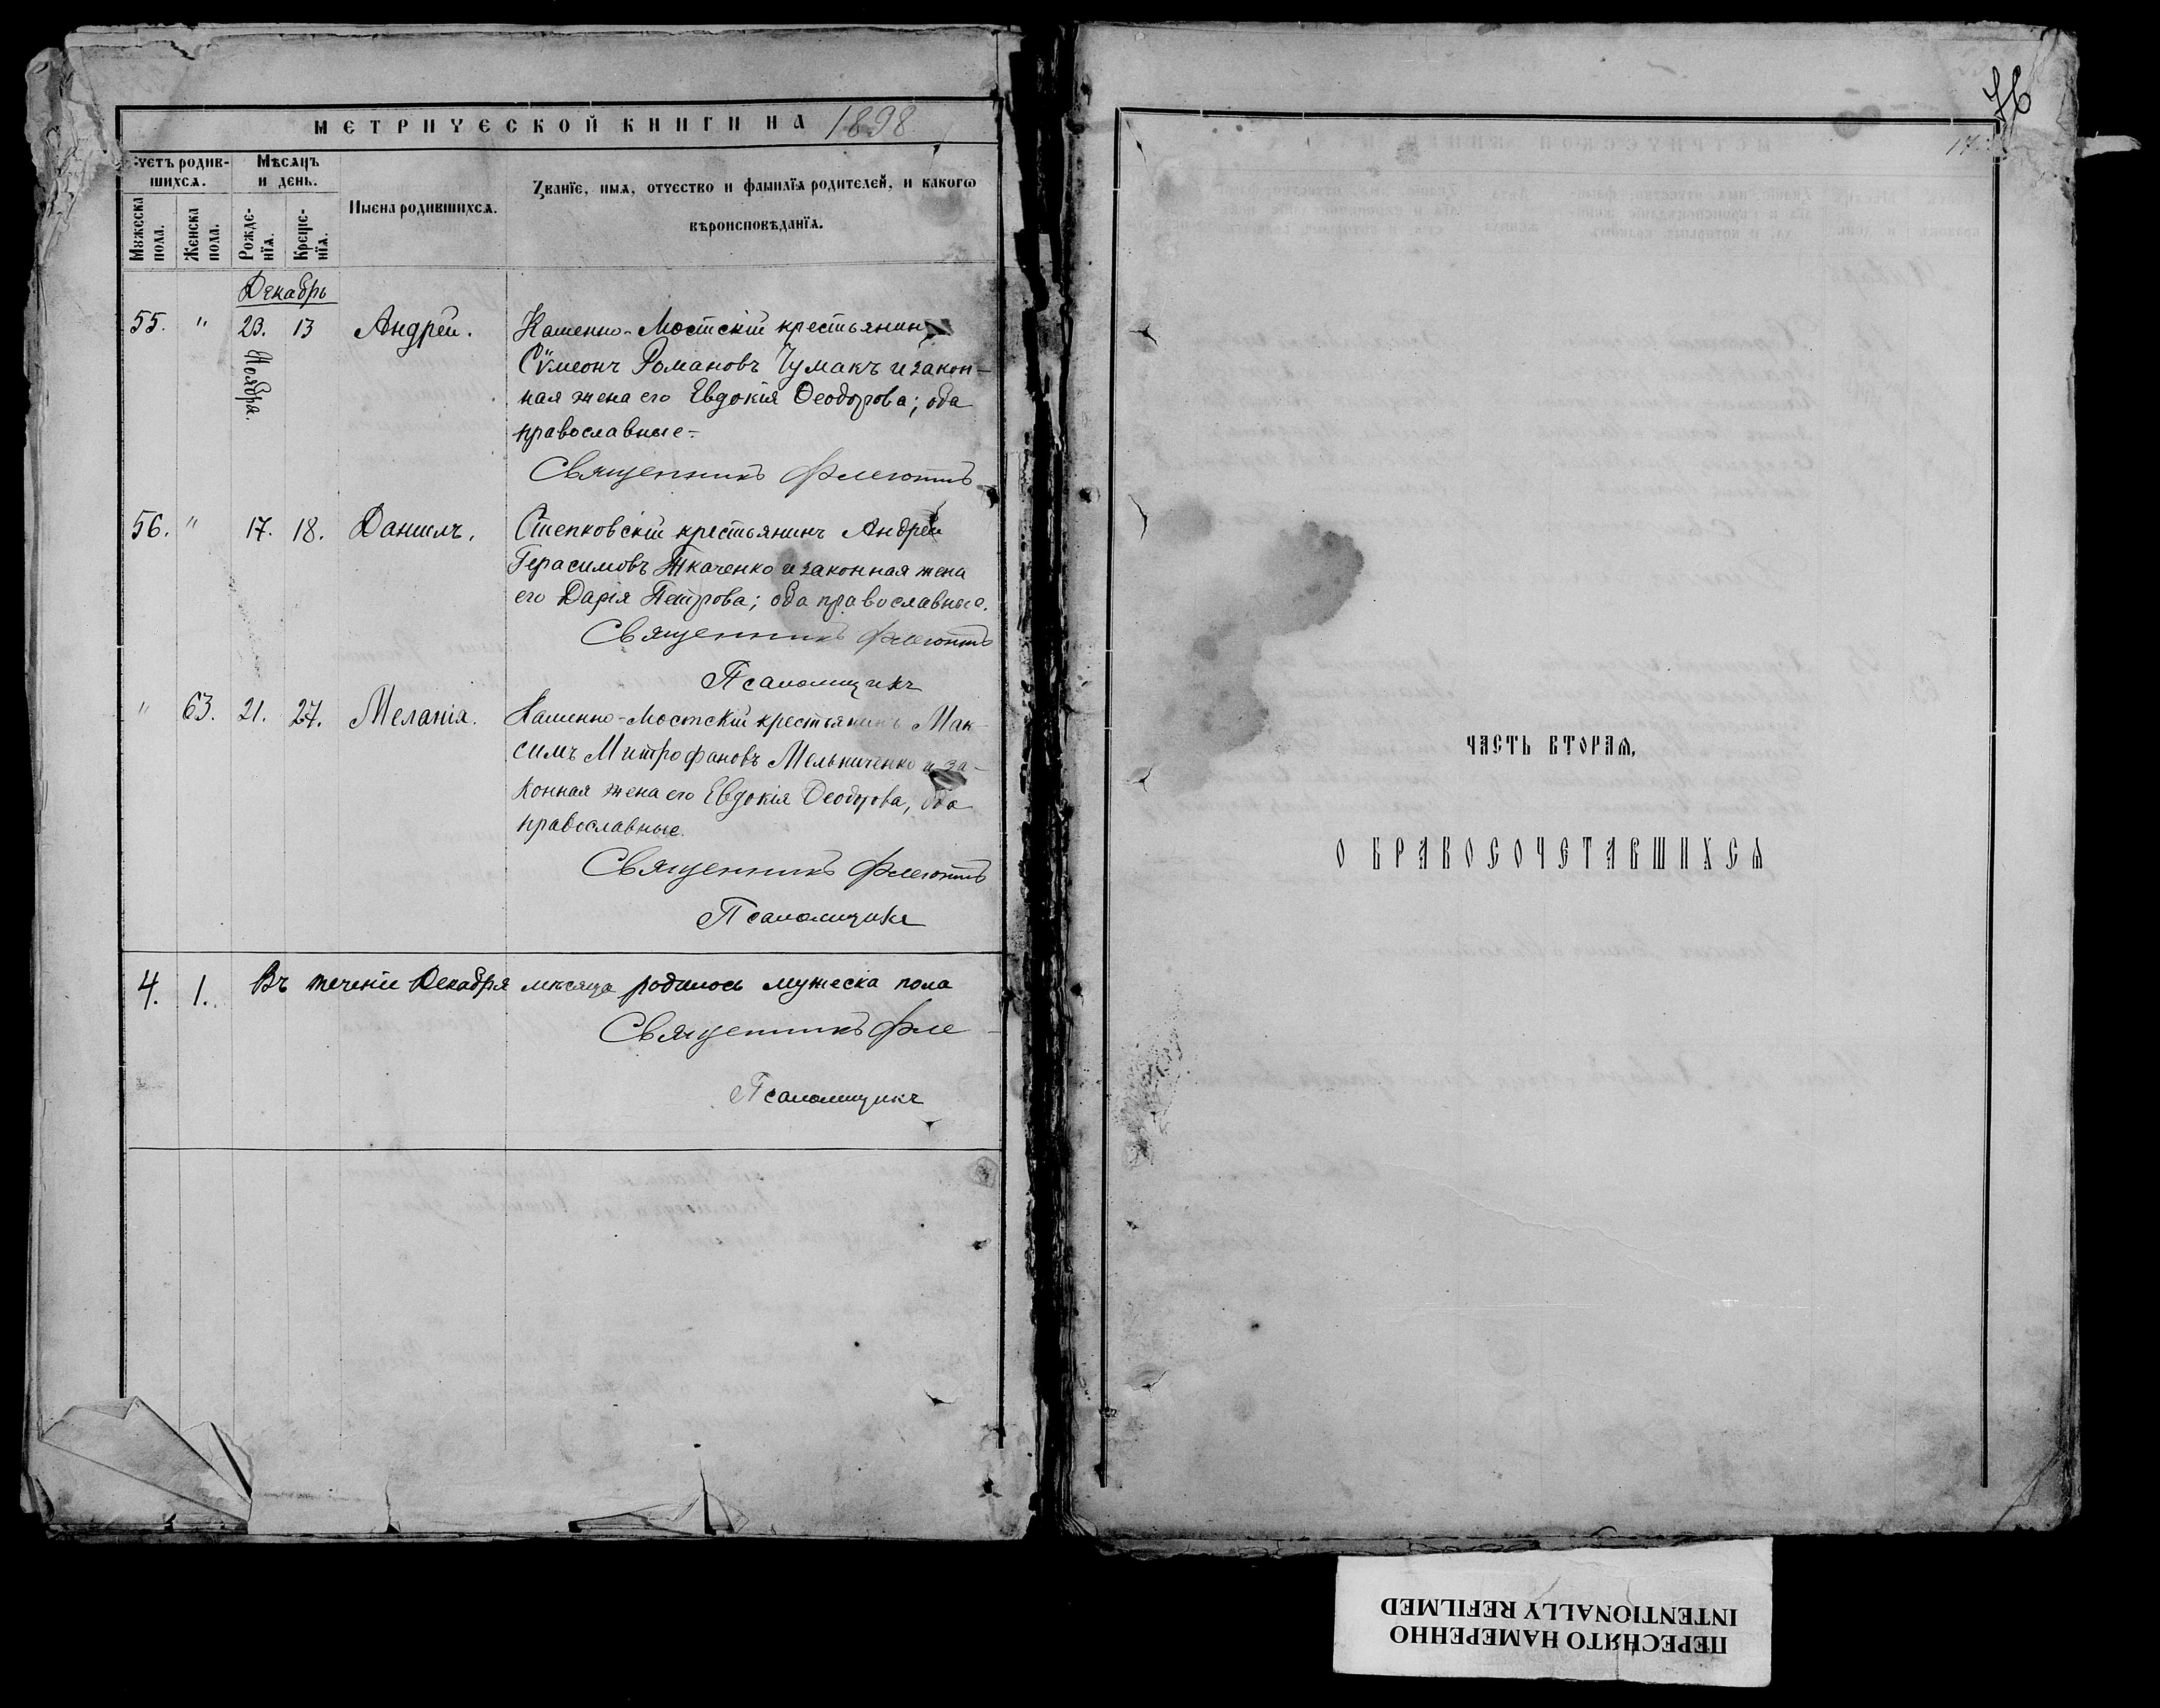 МЕТРИЧЕСКОЙ КНИГИ НА 1898
Счетъ родив-
шихсѧ.
Мѣсѧцъ
и день.
Имена родившихсѧ.
Званїе, имѧ, отчество и фамилїѧ родителей, и какогѡ
вѣроисповѣданїѧ.
Мꙋжеска пола.
Женска пола.
Рожде-
нїѧ.
Креще-
нїѧ.
Декабрь
55. " 23. Ноября. 13 Андрей. Каменно-Мостскій крестьянинъ
Сѵмеонъ Романовъ Чумакъ и закон-
ная жена его Евдокія Ѳеодорова; оба
православные.-
Священникъ
56. " 17. 18. Даниилъ. Степковскій крестьянинъ Андрей
Герасимовъ Ткаченко и законная жена
его Дарія Петрова; оба православные.
Священникъ
Псаломщикъ
" 63. 21. 27. Меланія. Каменно-Мостскій крестьянинъ Мак-
симъ Митрофановъ Мельниченко и за-
конная жена его Евдокія Ѳеодорова, оба
православные.
Священникъ
Псаломщикъ
4. 1. Въ теченіе Декабря мѣсяца родилось мужеска пола
Священникъ
Псаломщикъ
76
ЧАСТЬ ВТОРАѦ,
О БРАКОСОЧЕТАВШИХСѦ
ПЕРЕСНЯТО НАМЕРЕННО
INTENTIONALLY REFILMED